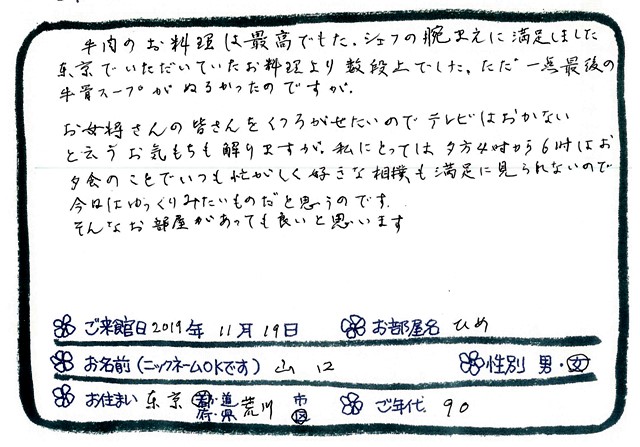 牛肉のお料理は最高でした。シェフの腕まえに満足しました
東京でいただいていたお料理より数段上でした。ただ一点最後の
牛骨スープがぬるかったのですが、
お女将さんの皆さんをくつろがせたいのでテレビはおかない
と云うお気もちも解りますが、私にとっては夕方4時から6時はお
夕食のことでいつも忙がしく好きな相撲も満足に見られないので
今日はゆっくりみたいものだと思うのです。
そんなお部屋があっても良いと思います
ご来館日 2019年 11月 19日 お部屋名 ひめ
お名前(ニックネームOKです) 山口 性別 男・女
お住まい 東京 都・道 府・県 荒川 市 区 ご年代 90